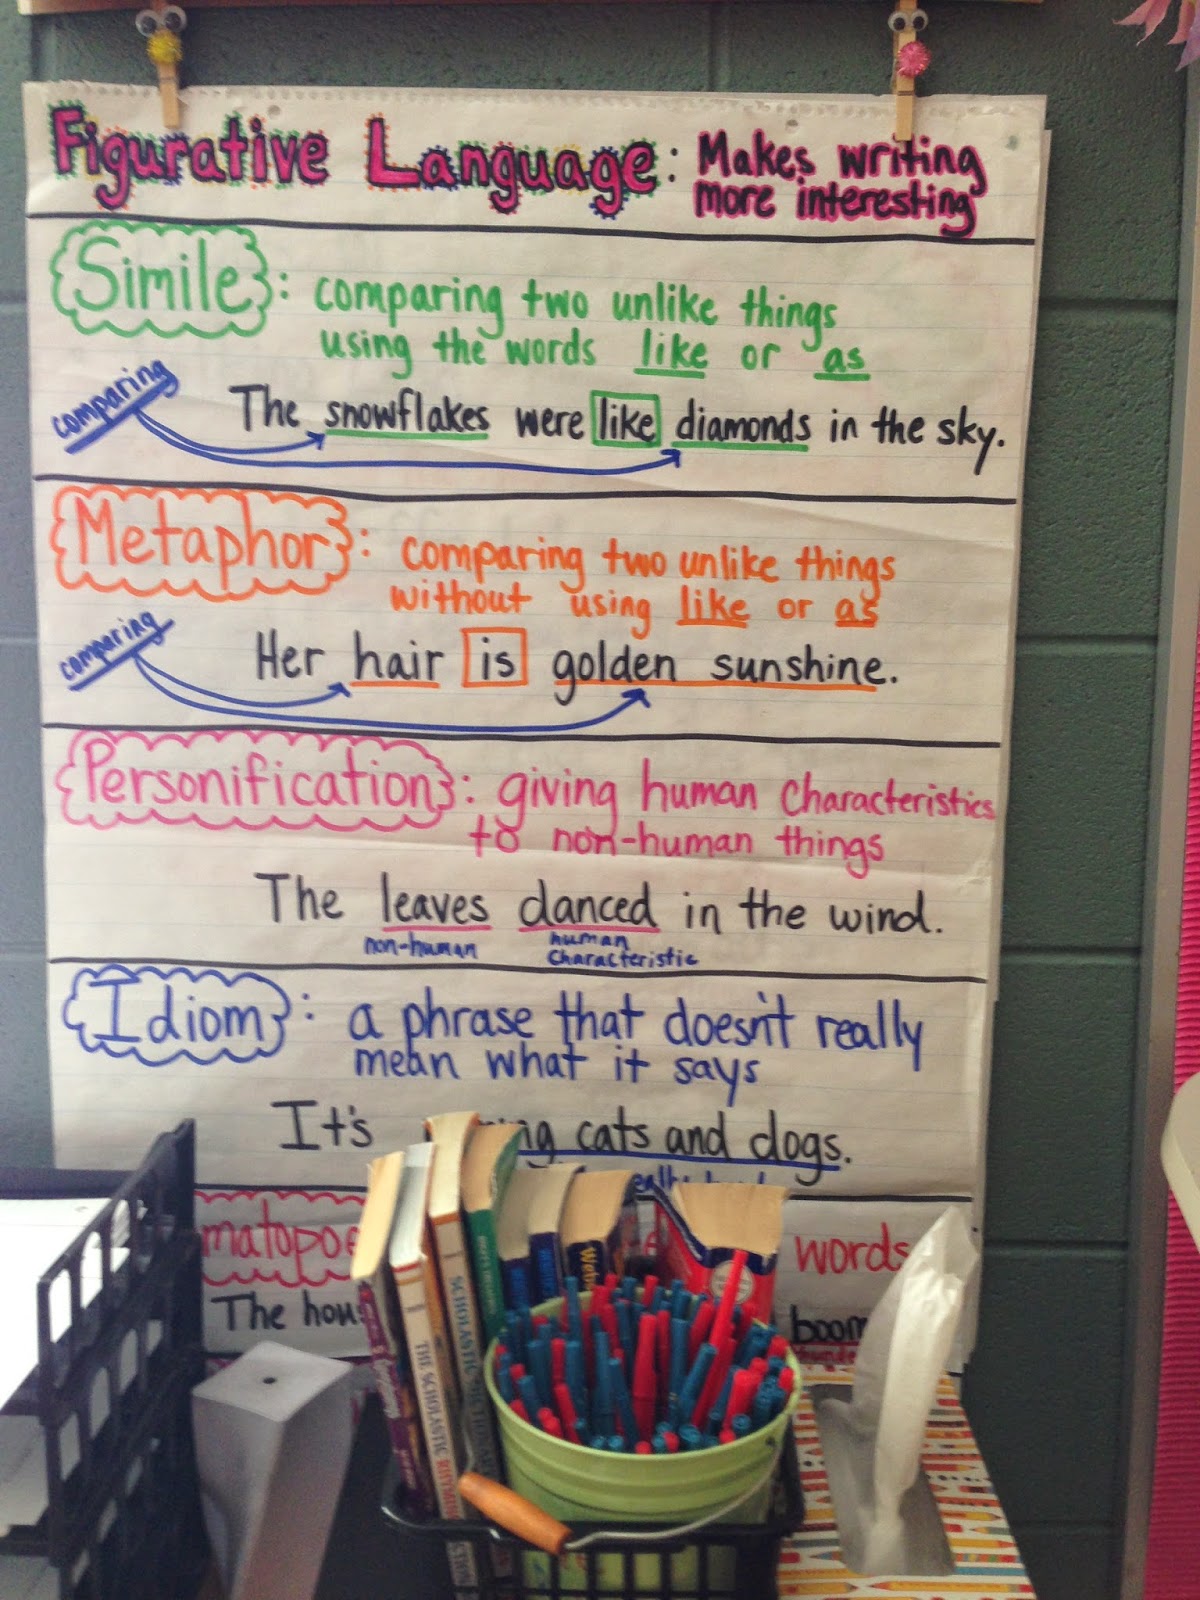 Figurative Language: Makes writing
more interesting
Simile: comparing two unlike things
using the words like or as
comparing
The snowflakes were like diamonds in the sky.
Metaphor: comparing two unlike things
without using like or as
comparing
Her hair is golden sunshine.
Personification: giving human characteristics
to non-human things
The leaves danced in the wind.
non-human human
characteristic
Idiom: a phrase that doesn't really
mean what it says
It's cats and dogs.
words
The
boom
THE SCHOLASTIC
SCHOLASTIC